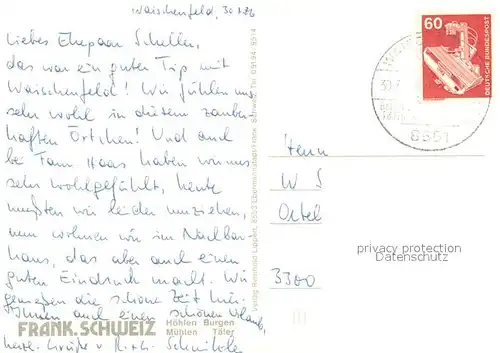 Waischenfeld, 30.7.86
Liebes Ehepaar Scheller,
das war ein guter Tip mit
Waischenfeld! Wir fühlen uns
sehr wohl in diesem zauber-
haften Örtchen! Und auch
bei Fam Haas haben wir uns
sehr wohlgefühlt, heute
mußten wir leider umziehen,
nun wohnen wir im Nachbar-
haus, das aber auch einen
guten Eindruck macht. Wir
genießen die schöne Zeit hier.
Ihnen auch einen schönen Urlaub,
herzl. Grüße v.
FRANK. SCHWEIZ
Höhlen Burgen
Mühlen Täler
60
DEUTSCHE BUNDESPOST
8551
Herrn
W S
3300
privacy protection
Datenschutz